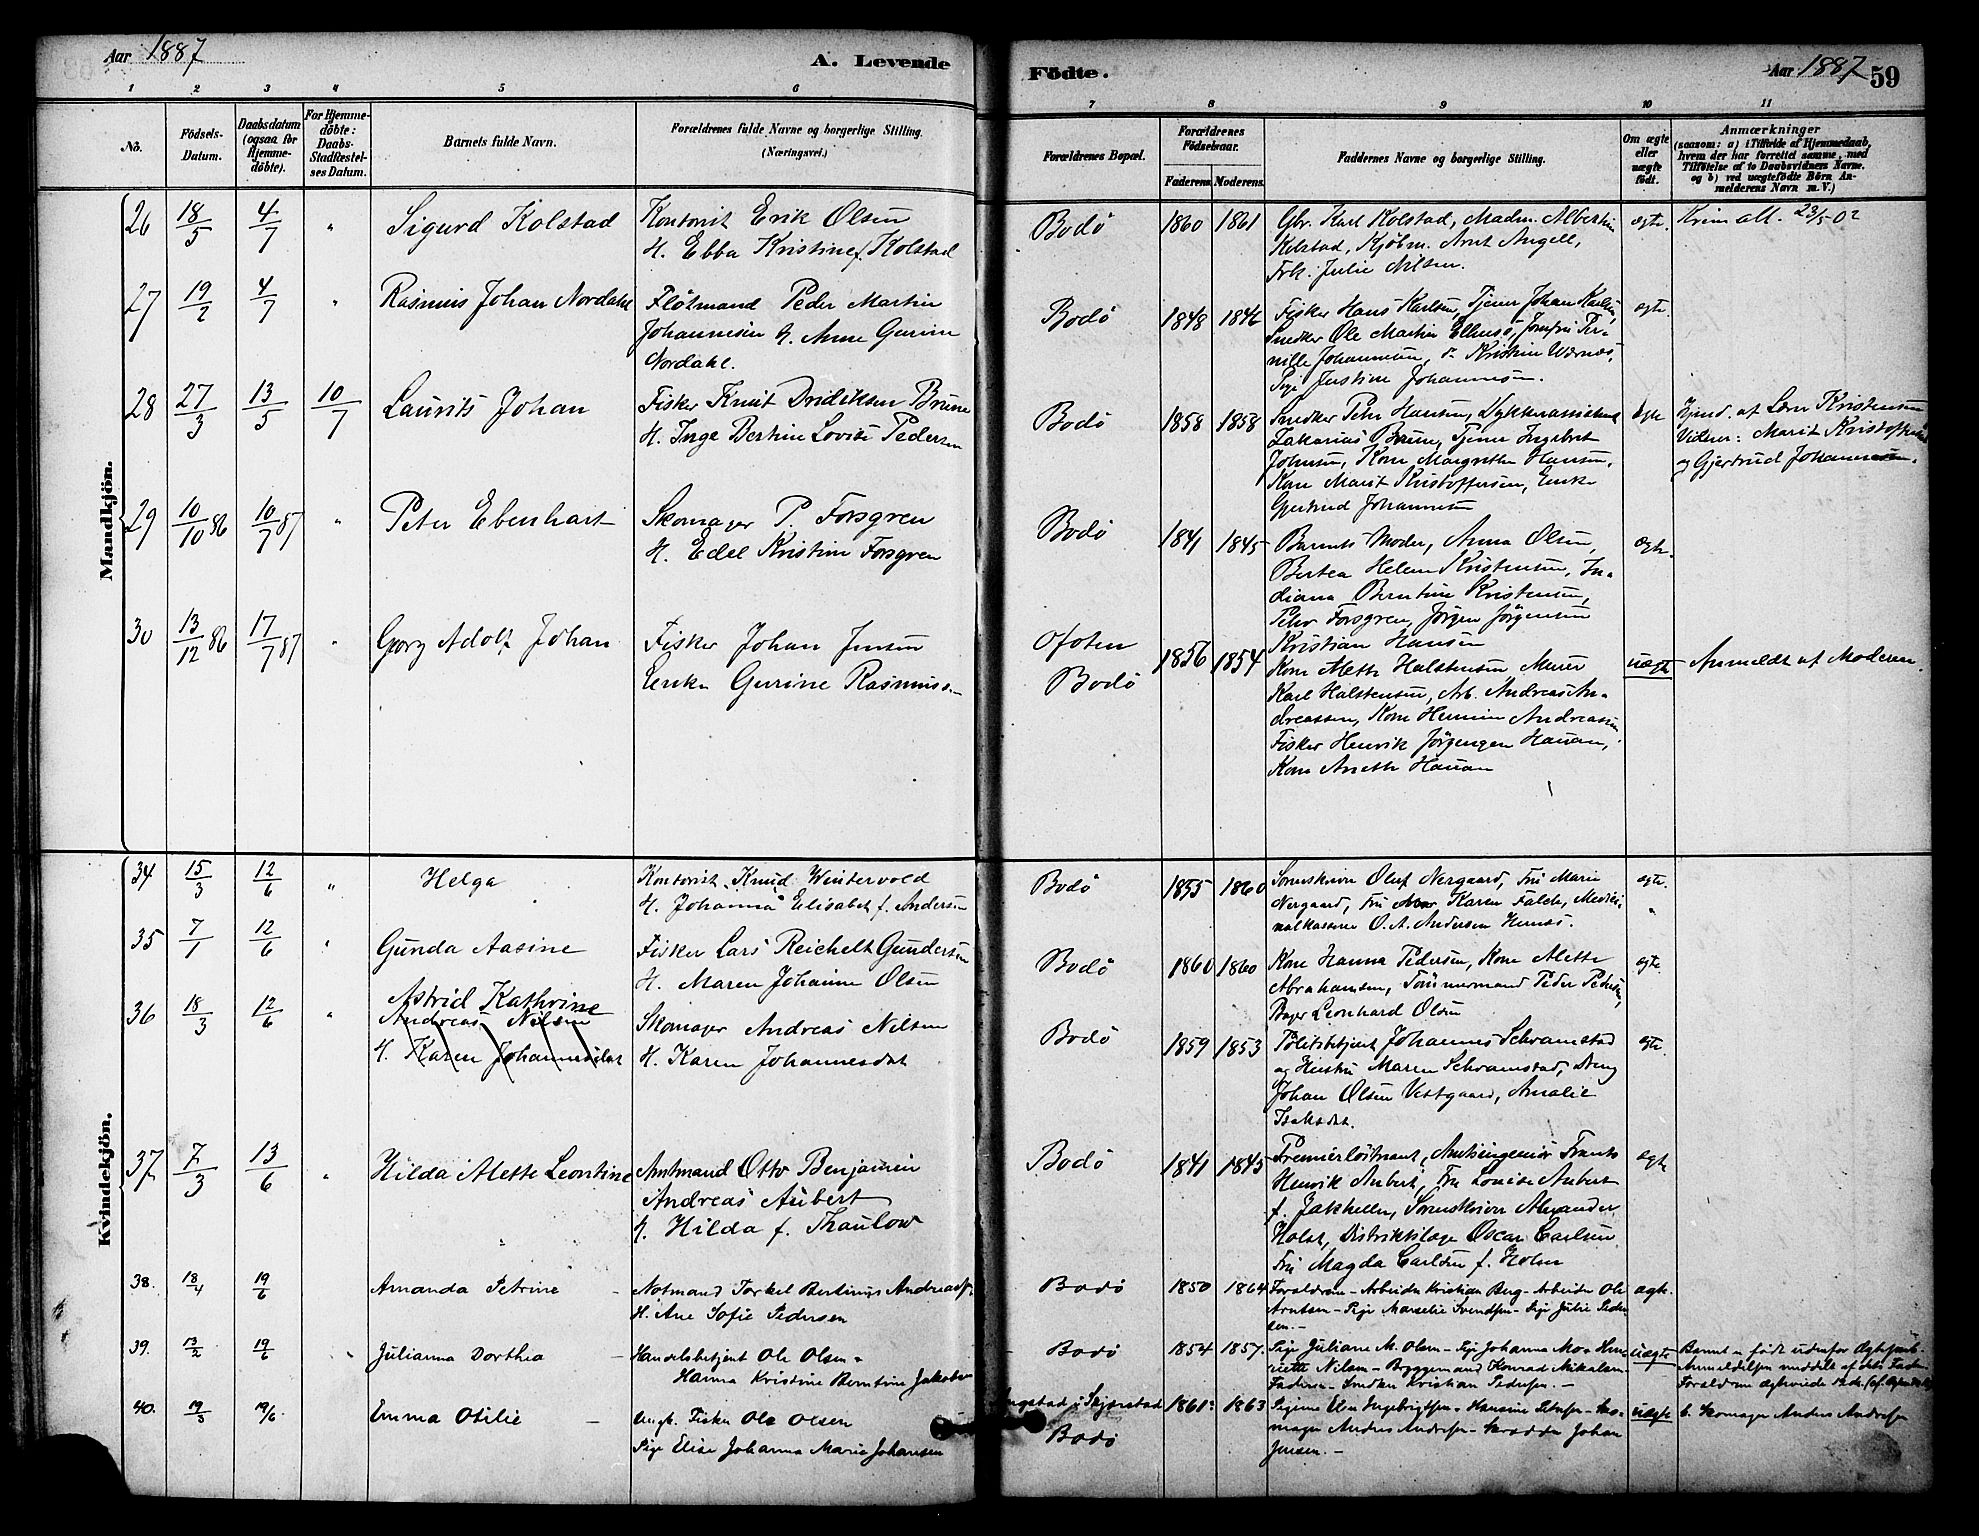 Aar 1887
A. Levende
Födte.
Aar 1887 59
1 2 3 4 5 6 7 8 9 10 11
No.
Födsels-Datum.
Daabsdatum (ogsaa for Hjemme-döbte).
For Hjemme-döbte: Daabs-Stadfæstel-ses Datum.
Barnets fulde Navn.
Forældrenes fulde Navne og borgerlige Stilling.
(Næringsvei.)
Forældrenes Bopæl.
Forældrenes Födselsaar.
Faderens. Moderens.
Faddernes Navne og borgerlige Stilling.
Om ægte eller uægte födt.
Anmærkninger
(saasom: a) i Tilfælde af Hjemmedaab,
hvem der har forrettet samme, med
Tilföielse af to Daabsvidners Navne.
og b) ved uægtefödte Börn An-
melderens Navn m. V.)
Mandkjön.
26 18/5 4/7 " Sigurd Kolstad
Kontorist Erik Olsen
H. Ebba Kristine f. Kolstad
Bodö 1860 1861
Gbr. Karl Kolstad, Madm. Albertine
Kolstad, Kjöbm. Arnt Angell,
Frk. Julie Nilsen.
ægte. 23/5 02
27 19/2 4/7 " Rasmus Johan Nordahl
Flötmand Peder Martin
Johannesen H. Anne Gurine
Nordahl.
Bodö 1848 1846
Fisker Hans Karlsen, Tjener Johan Karlsen,
Snedker Ole Martin Ellensö, Jomfru Per-
nille Johannesen, Kristine Wærnæs,
Pige Justine Johannesen.
ægte.
28 27/3 13/5 10/7 Laurits Johan
Fisker Knut Dridiksen Brune
H. Inge Bertine Lovise Pedersen
Bodö 1858 1858
Snedker Peter Hansen, Dykkerassistent
Zakarias Brune, Tjener Ingebret
Johnsen, Kone Margrethe Hansen,
Kone Marit Kristoffersen, Enke
Gjertrud Johannesen
ægte
Hjmd. af Lars Kristensen
Vidner: Marit Kristoffersen
og Gjertrud Johannesen.
29 10/10 86 10/7 87 " Peter Ebenhart
Skomager P. Forsgren
H. Edel Kristine Forsgren
Bodö 1841 1845
Barnets Moder, Anna Olsen,
Bertea Helene Kristensen, In-
diana Berntine Kristensen,
Peter Forsgren, Jörgen Jörgensen
Kristian Hansen
ægte.
30 13/12 86 17/7 87 " Georg Adolf Johan
Fisker Johan Jensen
Enke Gurine Rasmuss.
Ofoten
Bodö 1856 1854
Kone Mette Halstensen, Murer
Karl Halstensen, Arb. Andreas An-
dreassen, Kone Hermine Andreassen
Fisker Henrik Jörgensen Hauan,
Kone Aneth Hauan
uægte Anmeldt af Moderen.
Kvindekjön.
34 15/3 12/6 " Helga
Kontorist Knud Wintervold
H. Johanna Elisabet f. Andersen
Bodö 1855 1860
Sorenskriver Oluf Nergaard, Fru Marie
Nergaard, Fru Karen Falch, Medici-
nalkasserer O. A. Andersen Hernæs.
ægte.
35 7/1 12/6 " Gunda Aasine
Fisker Lars Reichelt Gundersen
H. Maren Johanne Olsen
Bodö 1860 1860
Kone Hanna Pedersen, Kone Alette
Abrahamsen, Tömmermand Peder Pedersen,
Bager Leonhard Olsen
ægte
36 18/3 12/6 " Astrid Kathrine
Andreas Nilsen
H. Karen Johannesdat
Skomager Andreas Nilsen
H. Karen Johannesdat
Bodö 1859 1853
Politibetjent Johannes Schvamstad
og Hustru Maren Schvamstad, Dreng
Johan Olsen Vestgaard, Amalie
Isaksdat.
ægte.
37 7/3 13/6 " Hilda Alette Leontine
Amtmand Otto Benjamin
Andreas Aubert
H. Hilda f. Thaulow
Bodö 1841 1845
Premierlöitnant, Amtsingeniör Frants
Henrik Aubert, Fru Louise Aubert
f. Jakhelln, Sorenskriver Alexander
Holst, Distriktslæge Oscar Carlsen
Fru Magda Carlsen f. Holm
ægte
38. 18/4 19/6 Amanda Petrine
Notmand Torkel Bertinus Andreass.
H. Ane Sofie Pedersen
Bodö 1850 1864
Forældrene - Arbeider Kristian Berg - Arbeider Ole
Arntsen - Pige Marselie Svendsen - Pige Julie Peder
sen. -
ægte.
39. 13/2 19/6 Julianna Dorthea
Handelsbetjent Ole Olsen
Hanna Kristine Berntine Jakobsen
Bodö 1854 1857.
Pige Juliane M. Olsen - Pige Johanna Moe Hen-
riette Nilsen - Bryggemand Konrad Mikalsen
Faderen - Snedker Kristian Pedersen. -
uægte
Barnet er födt udenfor Ægteskab.
Anmeldelsen meddelt af dets Fader.
40. 19/3 19/6 Emma Otilie
Ungk. Fisker Ole Olsen
Pige Elise Johanna Marie Johansen
Ingstad i Skjerstad
Bodö
1861 1863
Pigerne Elen Ingebrigtsen - Hansine Petersen - Sko-
mager Anders Andresen - Skrædder Johan
Jensen. -
uægte
b. Skomager Anders Andresen